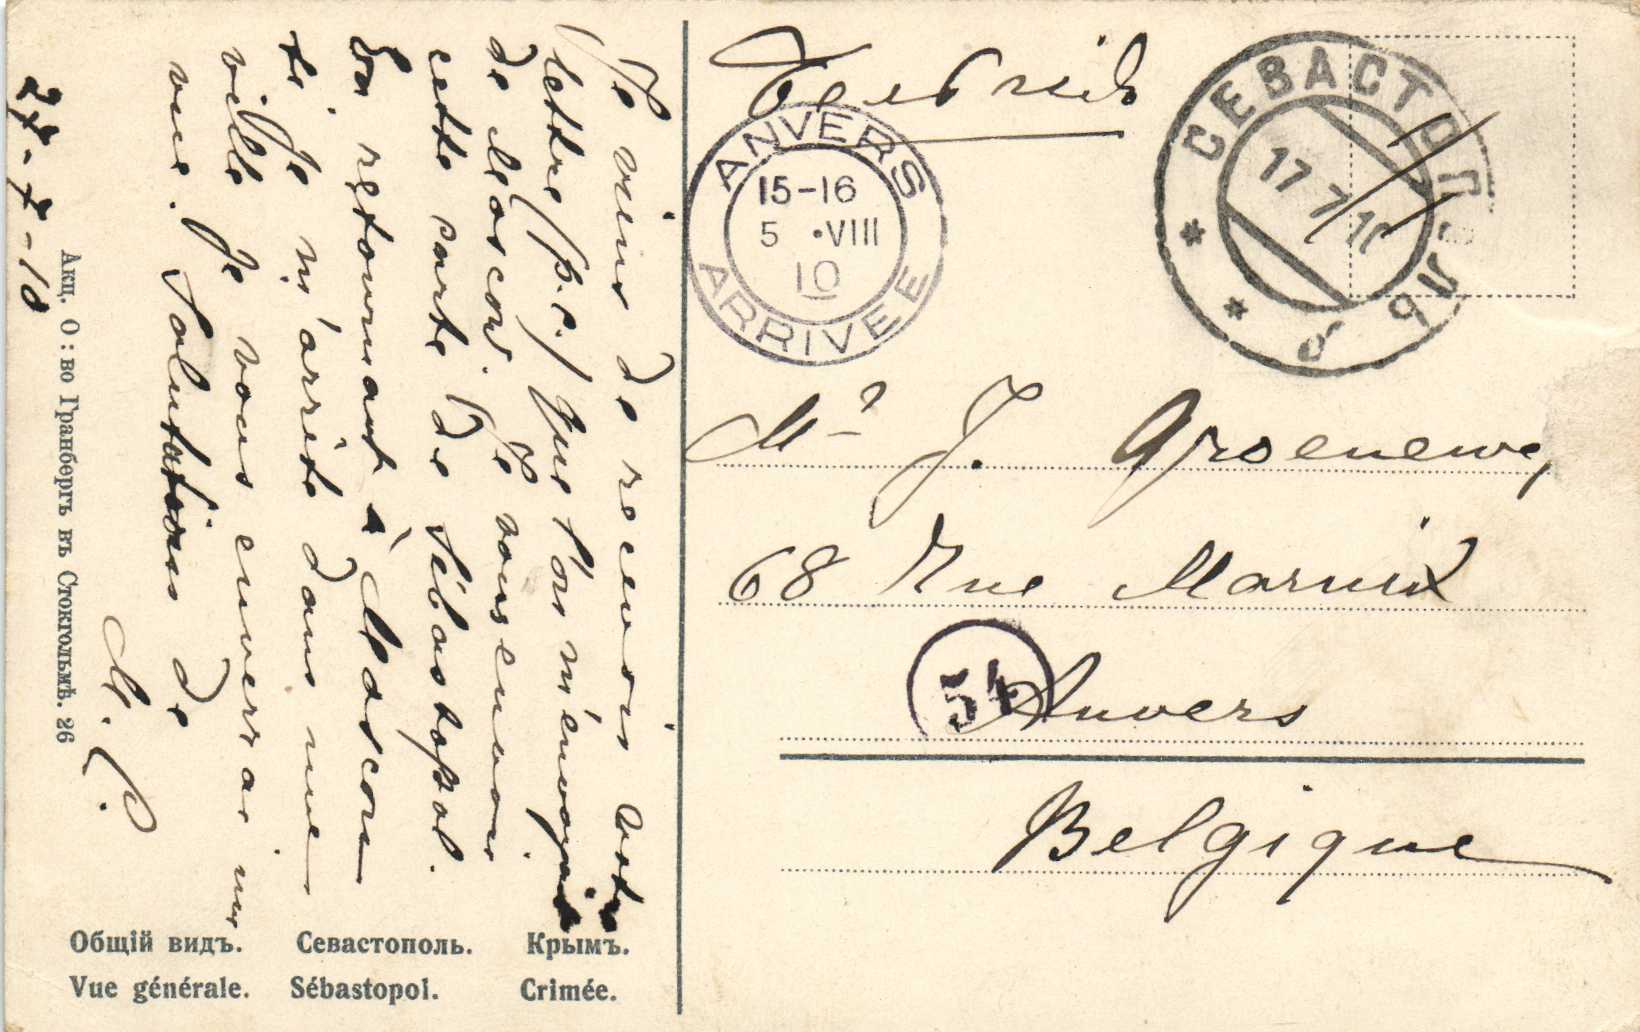 Je viens de recevoir votre
lettre (p.c.) que l'on m'envoya
de Moscou. Je vous envoie
cette carte de Sébastopol.
En retournant à Moscou
je m'arrête dans une
ville Je vous enverrai une
vue. Salutations de
M. P.
27-7-10
Акц. О: во Гранбергъ въ Стокгольмѣ. 26
Общій видъ. Севастополь. Крымъ.
Vue générale. Sébastopol. Crimée.
Бельгия
СЕВАСТОПОЛЬ
17 7 10
ANVERS
15-16
5 ·VIII
10
ARRIVEE
Mr J. Groeneweg
68 Rue Marnix
54
Anvers
Belgique